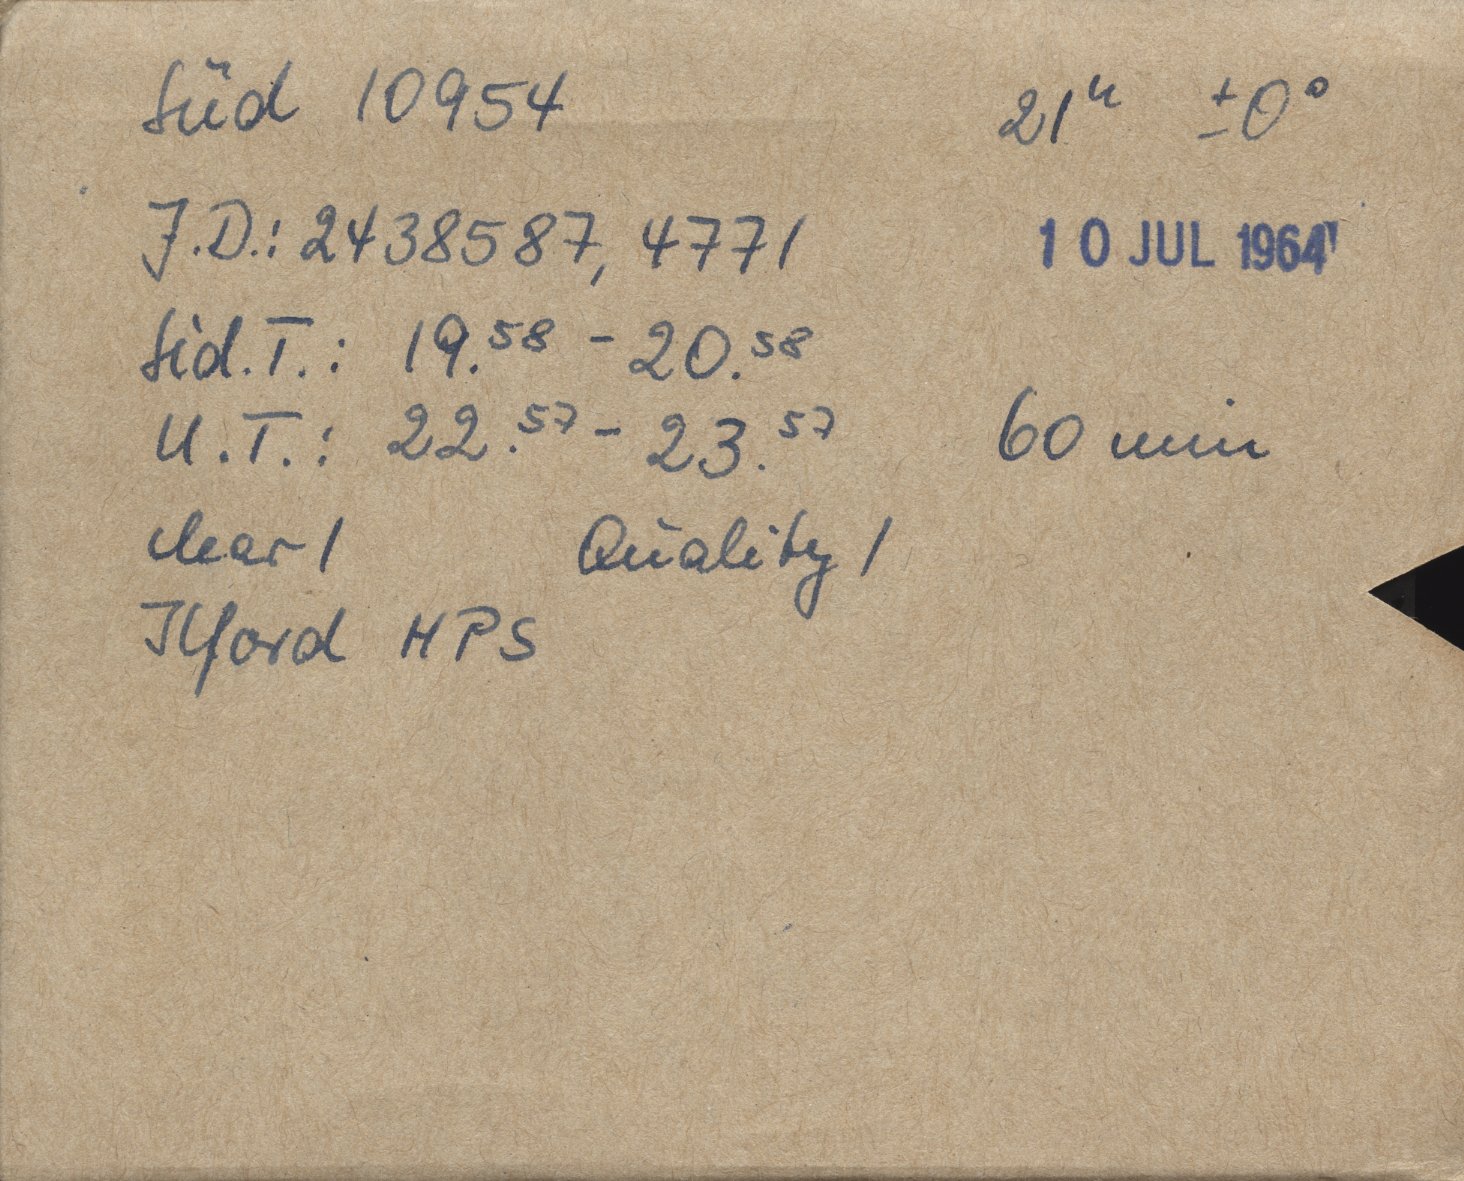 Süd 10954 21ʰ ±0°
J.D.: 2438587,4771 10 JUL 1964
Sid.T.: 19.⁵⁸ - 20.⁵⁸
U.T.: 22.⁵⁷ - 23.⁵⁷ 60 min
clear 1 Quality 1
Ilford HPS